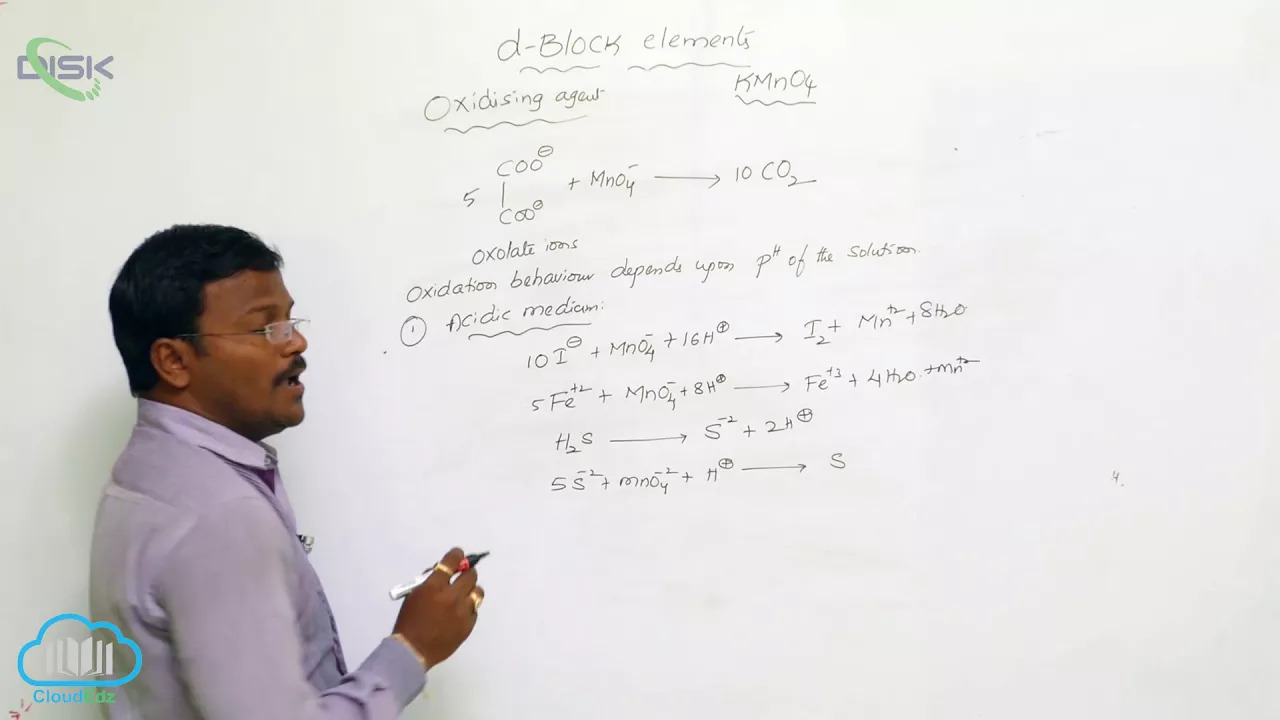 DISK
d-Block elements
KMnO₄
Oxidising agent
COO⊖
5 | + MnO₄⁻ ⟶ 10 CO₂
COO⊖
Oxolate ions
Oxidation behaviour depends upon pᴴ of the solution.
① Acidic medium:
10 I⊖ + MnO₄⁻ + 16H⊕ ⟶ I₂ + Mn⁺² + 8H₂O
5Fe⁺² + MnO₄⁻ + 8H⊕ ⟶ Fe⁺³ + 4H₂O. + mn⁺²
H₂S ⟶ S⁻² + 2H⊕
5S⁻² + mnO₄⁻² + H⊕ ⟶ S
CloudEdz